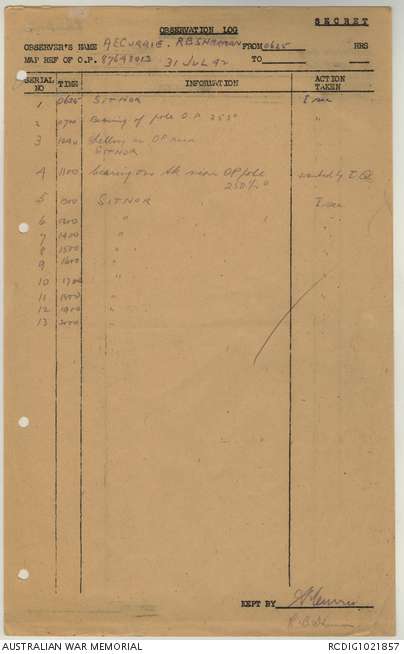 SECRET
OBSERVATION LOG
OBSERVER'S NAME AECURRIE. R.B. FROM 0625 HRS
MAP REF OF O.P. 87648013 31 JUL 42 TO
SERIAL NO TIME INFORMATION ACTION TAKEN
1 0625 SITNOR I sec
2 0700 Bearing of pole O.P. 253° "
3 Shelling in OP area "
SITNOR
4 1100 bearing on tk near OP pole by I.O
5 SITNOR I sec
6 1200 "
7 1400 "
8 1500 "
9 1600 "
10 1700 "
11 1800 "
12 1900 "
13 2000 "
KEPT BY
AUSTRALIAN WAR MEMORIAL RCDIG1021857